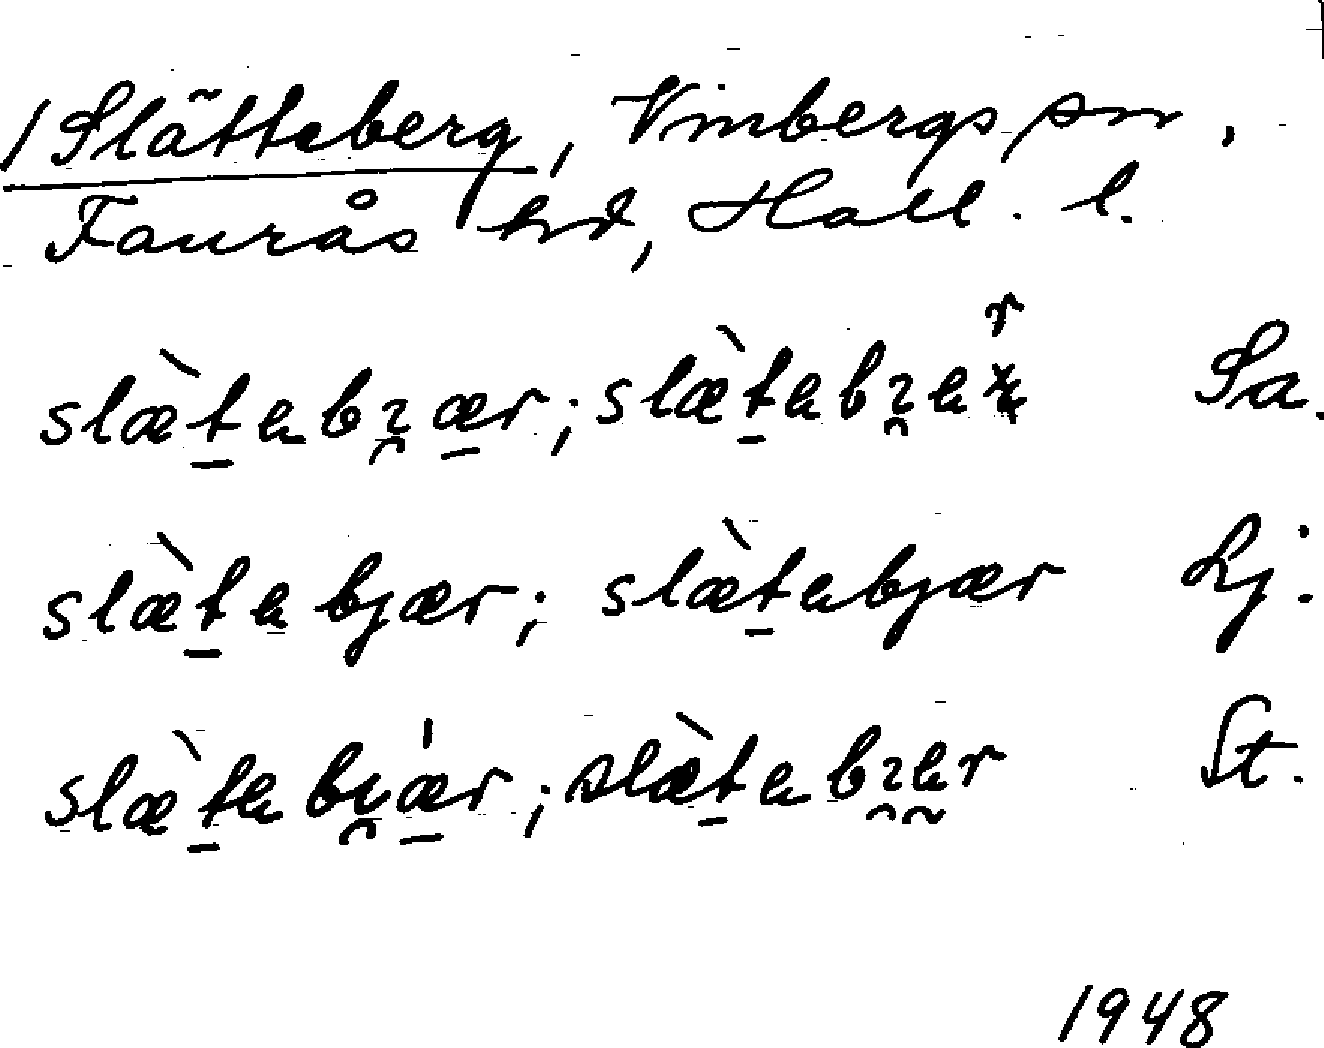 / Slätteberg, Vinbergs sn.
Faurås hd, Hall. l.
slæ̀t̠ebi̯æ̠r; slæ̀t̠ebi̯er Sa.
slæ̀t̠ebjær; slæ̀t̠ebjær Lj.
slæ̀t̠ebi̯ǽ̠r; slæ̀t̠ebi̯er St.
1948